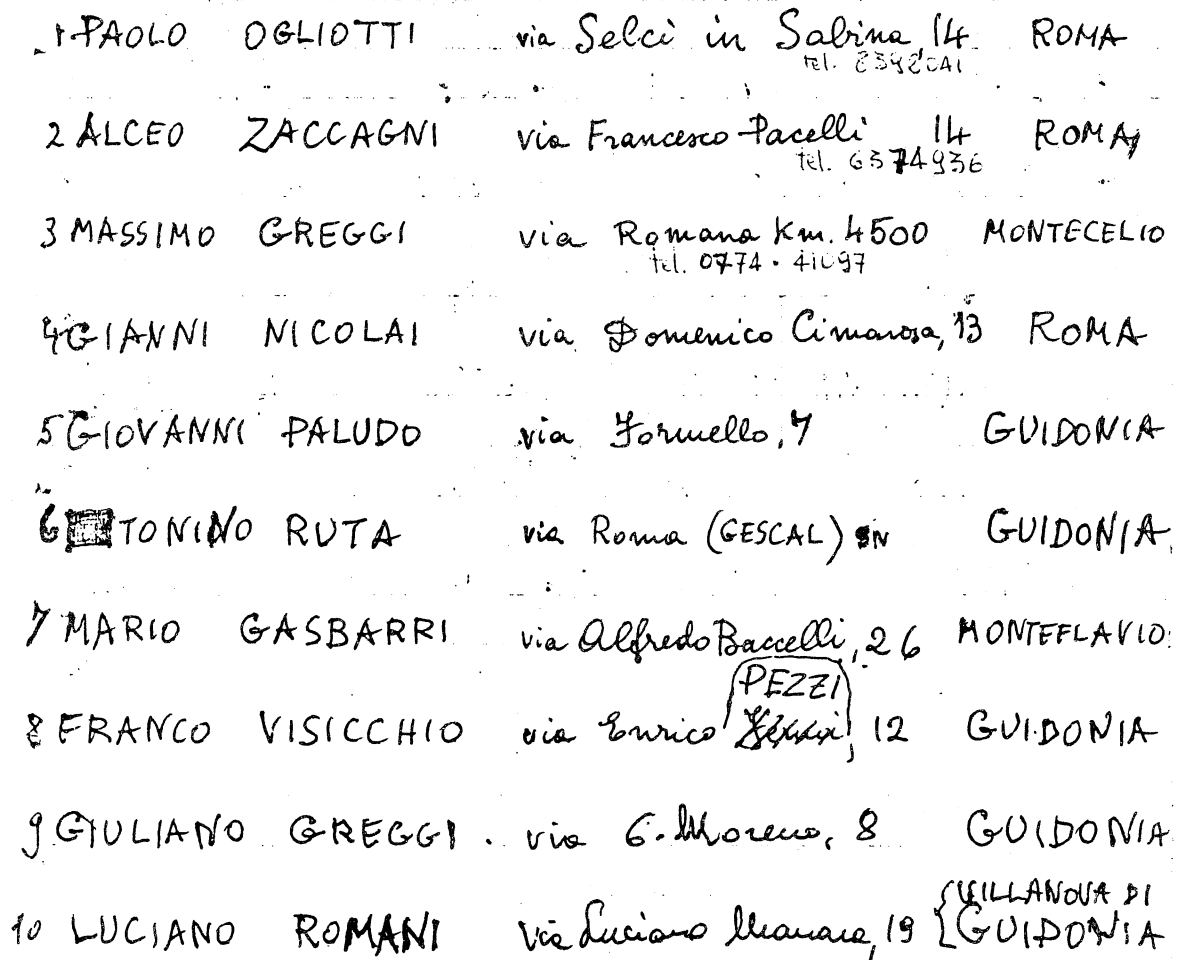 1 PAOLO OGLIOTTI via Selci in Sabina, 14 ROMA
tel.
2 ALCEO ZACCAGNI via Francesco Pacelli 14 ROMA
tel. 6374936
3 MASSIMO GREGGI via Romana Km. 4500 MONTECELIO
tel. 0774.
4 GIANNI NICOLAI via Domenico Cimarosa, 13 ROMA
5 GIOVANNI PALUDO via Formello, 7 GUIDONIA
6 TONINO RUTA via Roma (GESCAL) SN GUIDONIA
7 MARIO GASBARRI via Alfredo Baccelli, 26 MONTEFLAVIO
PEZZI
8 FRANCO VISICCHIO via Enrico , 12 GUIDONIA
9 GIULIANO GREGGI. via G. Moreno, 8 GUIDONIA
VILLANOVA DI
10 LUCIANO ROMANI via Luciano Manara, 19 GUIDONIA